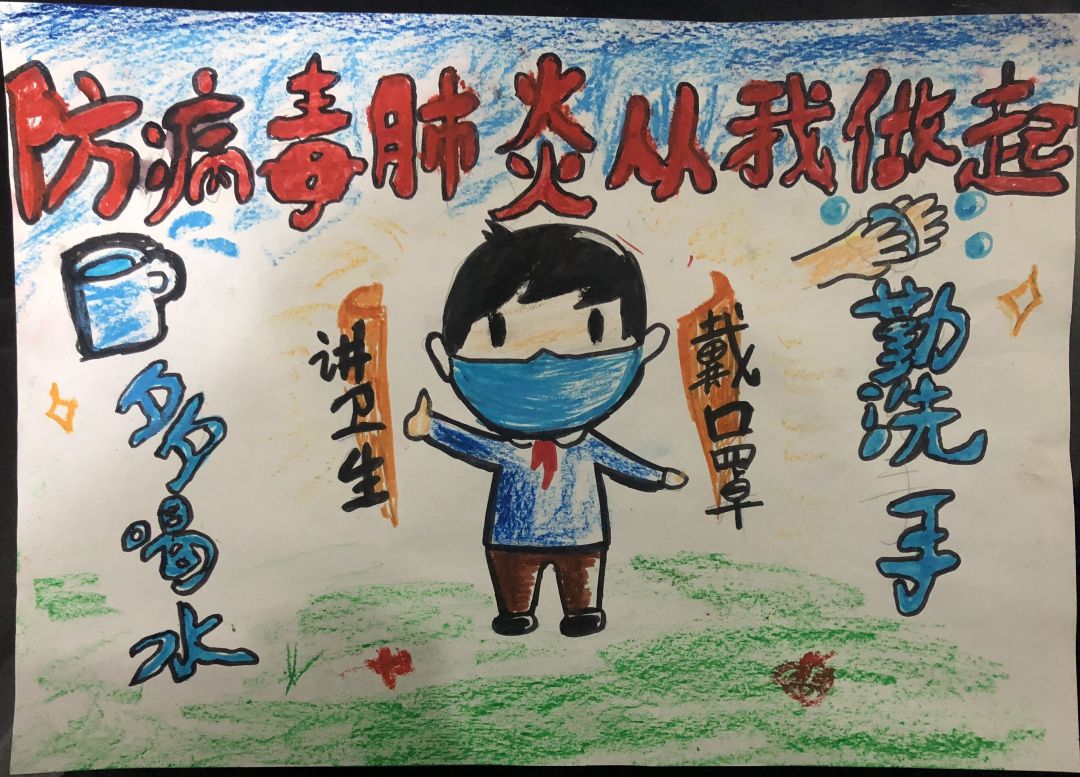 防病毒肺炎从我做起
多喝水
讲卫生
戴口罩
勤洗手